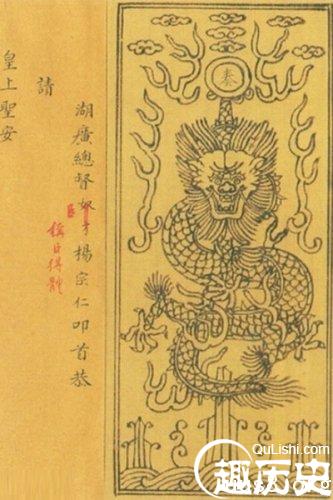 奏
湖廣總督奴才楊宗仁叩首恭
臣
稱臣得體
請
皇上聖安
QuLishi.com
趣历史